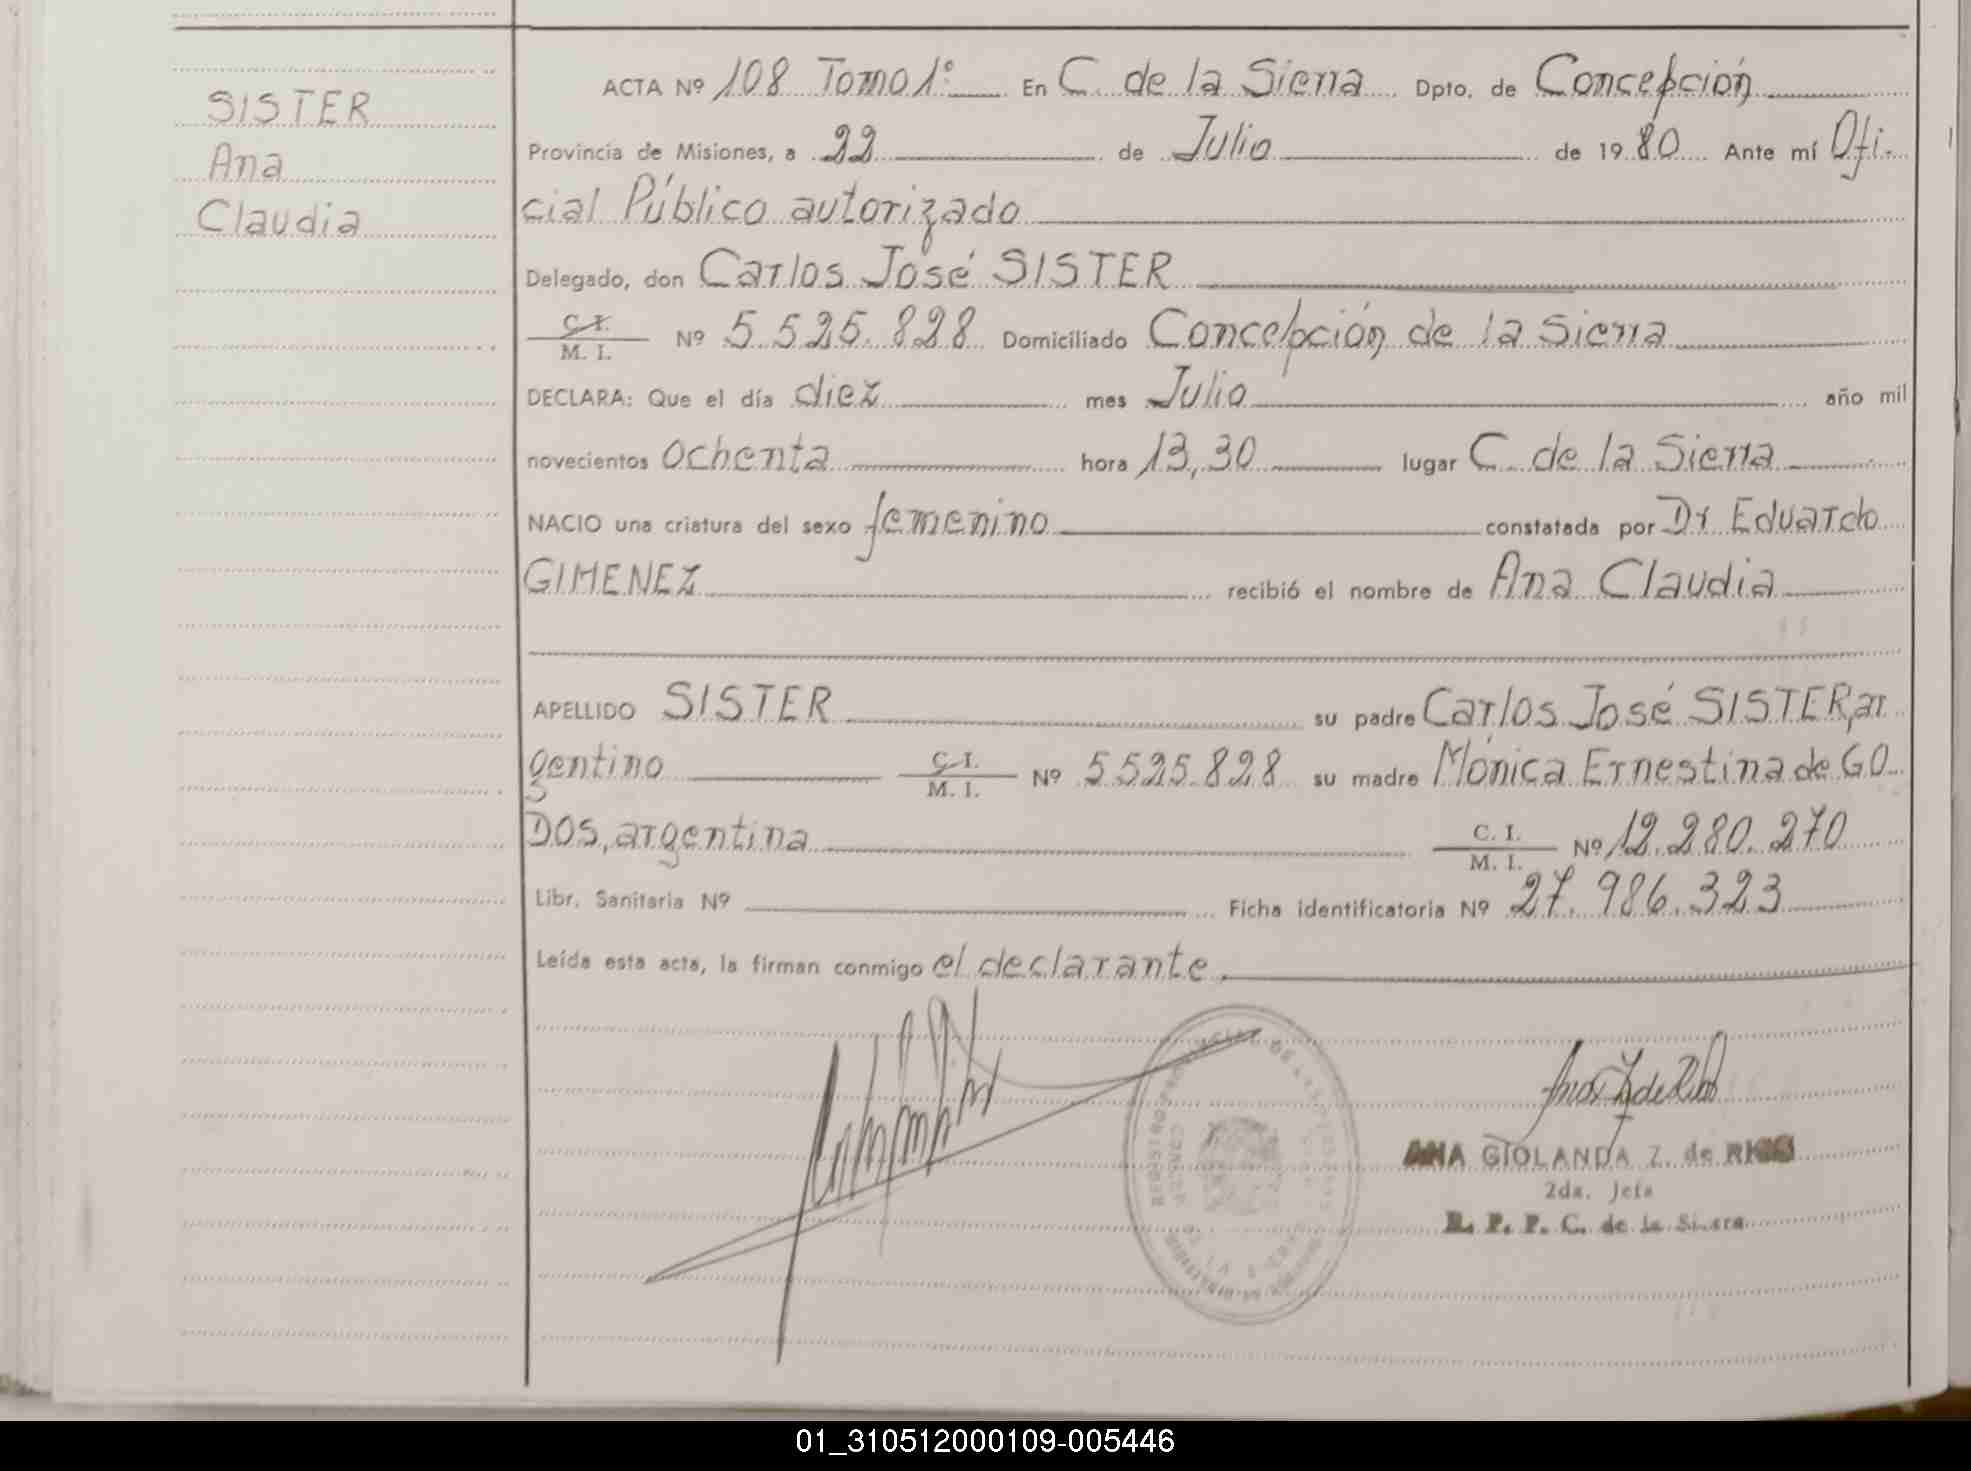 SISTER
Ana
Claudia
ACTA Nº 108 Tomo 1º En C. de la Sierra Dpto. de Concepción
Provincia de Misiones, a 22 de Julio de 1980 Ante mí Ofi-
cial Público autorizado
Delegado, don Carlos José SISTER
C. I.
M. I. Nº 5.525.828 Domiciliado Concepción de la Sierra
DECLARA: Que el día diez mes Julio año mil
novecientos ochenta hora 13,30 lugar C. de la Sierra
NACIO una criatura del sexo femenino constatada por Dr Eduardo
GIMENEZ recibió el nombre de Ana Claudia
APELLIDO SISTER su padre Carlos José SISTER, ar
gentino C. I.
M. I. Nº 5.525.828 su madre Mónica Ernestina de GO
DOS, argentina C. I.
M. I. Nº 12.280.270
Libr. Sanitaria Nº Ficha identificatoria Nº 27.986.323
Leída esta acta, la firman conmigo el declarante.
ANA GIOLANDA Z. de RIOS
2da. Jefa
R. P. P. C. de la Sierra
01_310512000109-005446